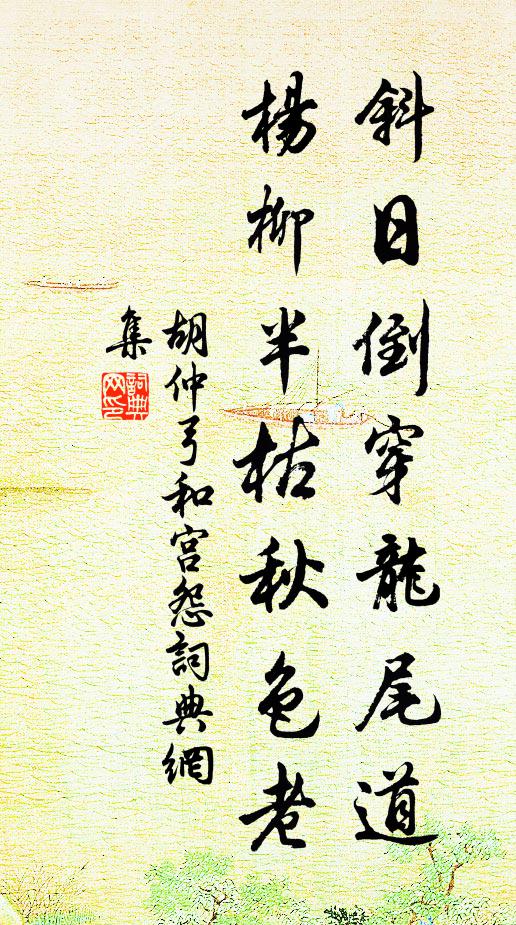 斜日倒穿龍尾道
楊柳半枯秋色老
胡仲弓和宮怨詞典網
集
詞典網印